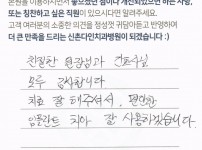 본원을 이용하시면서 좋았던 점이나 개선되었으면 하는 사항,
또는 칭찬하고 싶은 직원이 있으시다면 알려주세요.
고객 여러분의 소중한 의견을 정성껏 귀담아듣고 반영하여
더 큰 만족을 드리는 신촌다인치과병원이 되겠습니다 :)
친절한 원장님과 간호사님
모두 감사합니다
치료 잘 해주셔서, 편안한
임플란트 치아 잘 사용하겠습니다.